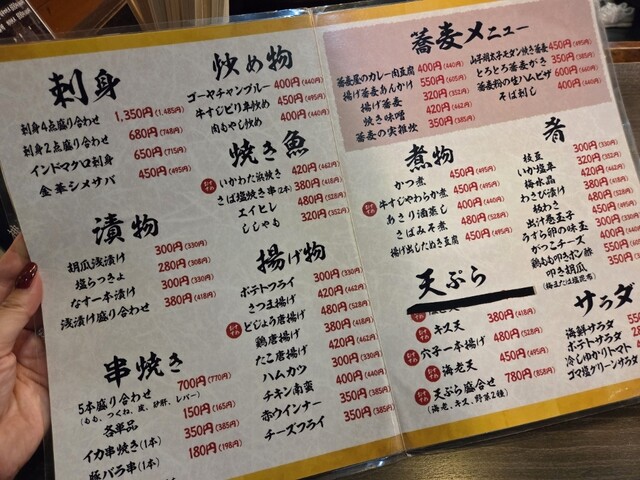 刺身
刺身4点盛り合わせ 1,350円(1,485円)
刺身2点盛り合わせ 680円(748円)
インドマグロ刺身 650円(715円)
金華シメサバ 450円(495円)
漬物
胡瓜浅漬け 300円(330円)
塩らっきょ 280円(308円)
なす一本漬け 300円(330円)
浅漬け盛り合わせ 380円(418円)
串焼き
5本盛り合わせ 700円(770円)
(もも、つくね、皮、砂肝、レバー)
各単品 150円(165円)
イカ串焼き(1本) 350円(385円)
豚バラ串(1本) 180円(198円)
炒め物
ゴーヤチャンプルー 400円(440円)
牛すじピリ辛炒め 450円(495円)
肉もやし炒め 400円(440円)
焼き魚
いかわた浜焼き 420円(462円)
さば塩焼き串(2本) 380円(418円)
エイヒレ 480円(528円)
ししゃも 320円(352円)
揚げ物
ポテトフライ 300円(330円)
さつま揚げ 420円(462円)
どじょう唐揚げ 380円(418円)
鶏唐揚げ 420円(462円)
たこ唐揚げ 480円(528円)
ハムカツ 300円(330円)
チキン南蛮 400円(440円)
赤ウインナー 350円(385円)
チーズフライ 350円(385円)
蕎麦メニュー
蕎麦屋のカレー肉豆腐 400円(440円)
揚げ蕎麦あんかけ 550円(605円)
揚げ蕎麦 320円(352円)
焼き味噌 420円(462円)
蕎麦の実雑炊 350円(385円)
山芋明太子モダン焼き蕎麦 450円(495円)
とろとろ蕎麦がき 350円(385円)
蕎麦粉の生ハムピザ 600円(660円)
そば刺し 400円(440円)
煮物
かつ煮 450円(495円)
牛すじやわらか煮 450円(495円)
あさり酒蒸し 480円(528円)
さばみそ煮 480円(528円)
揚げ出したぬき豆腐 450円(495円)
天ぷら
キス天 380円(418円)
穴子一本揚げ 480円(528円)
海老天 450円(495円)
天ぷら盛合せ 780円(858円)
(海老、キス、野菜2種)
肴
枝豆 300円(330円)
いか塩辛 320円(352円)
梅水晶 380円(418円)
わさび漬け
板わさ
出汁巻玉子
うずら卵の味玉
がっこチーズ
鶏もも叩きポン酢
叩き胡瓜
(梅または塩昆布)
サラダ
海鮮サラダ
ポテトサラダ
冷しゆかりトマト
ゴマ塩グリーンサラダ